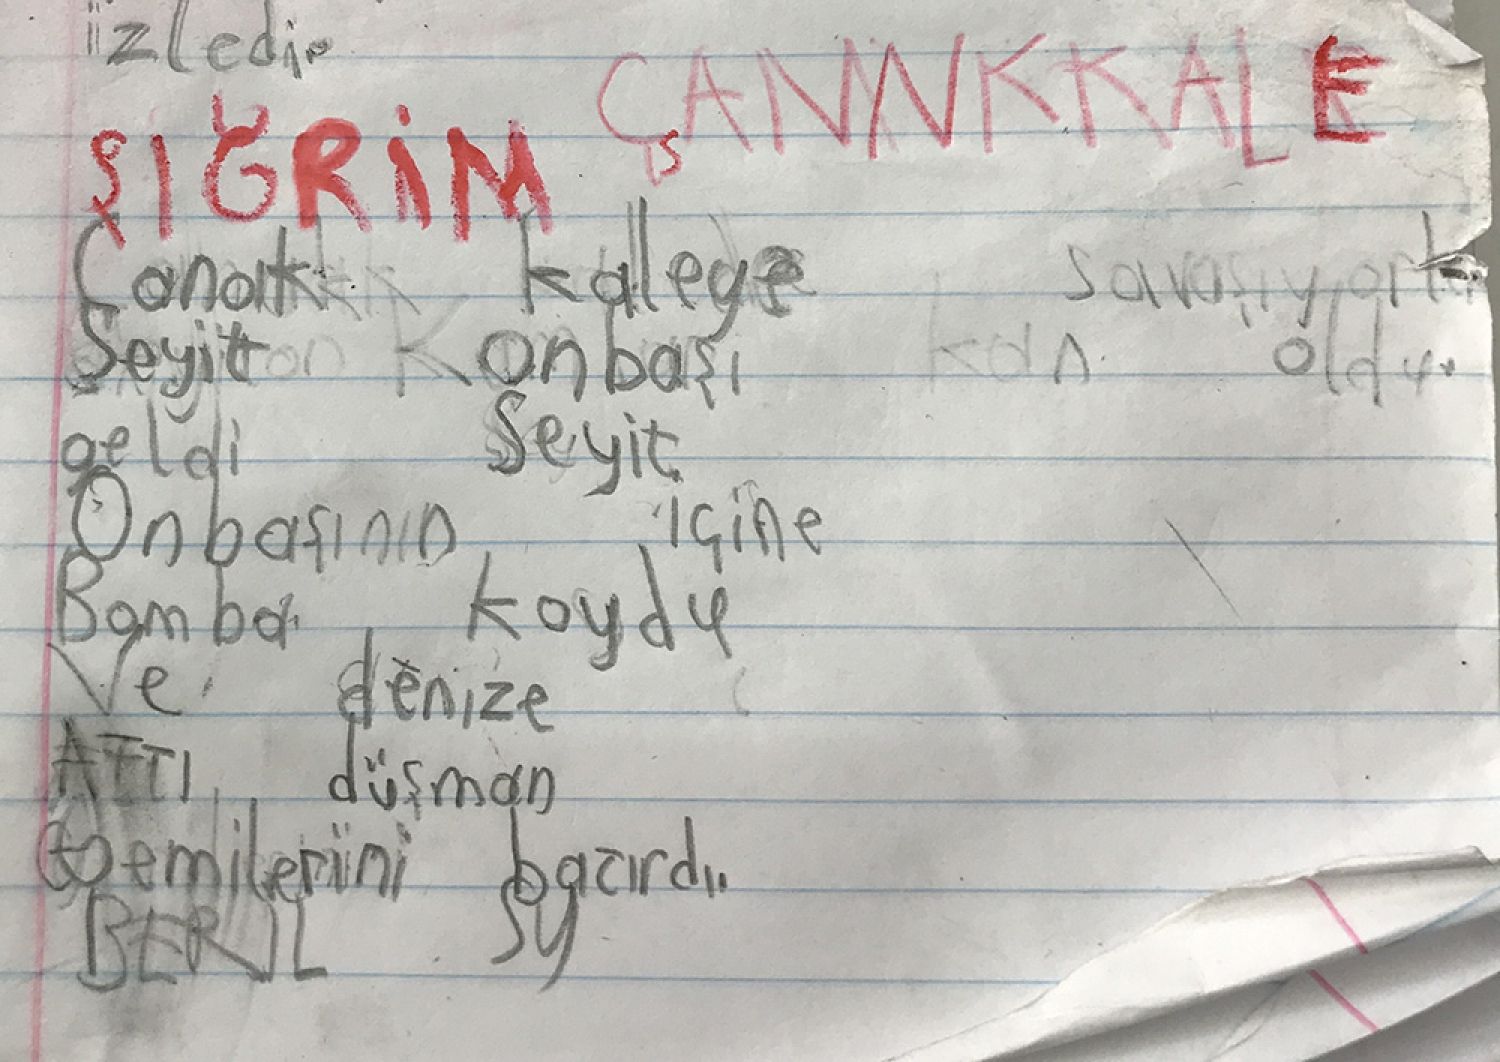 izledi.
ÇANNKKALE
ŞIĞRİM
Çanak kaleye savaşıyorlar
Seyit onbaşı kan oldu.
geldi Seyit
Onbaşının içine
Bomba koydu
Ve denize
ATTI düşman
gemilerini batırdı.
BERİL SY